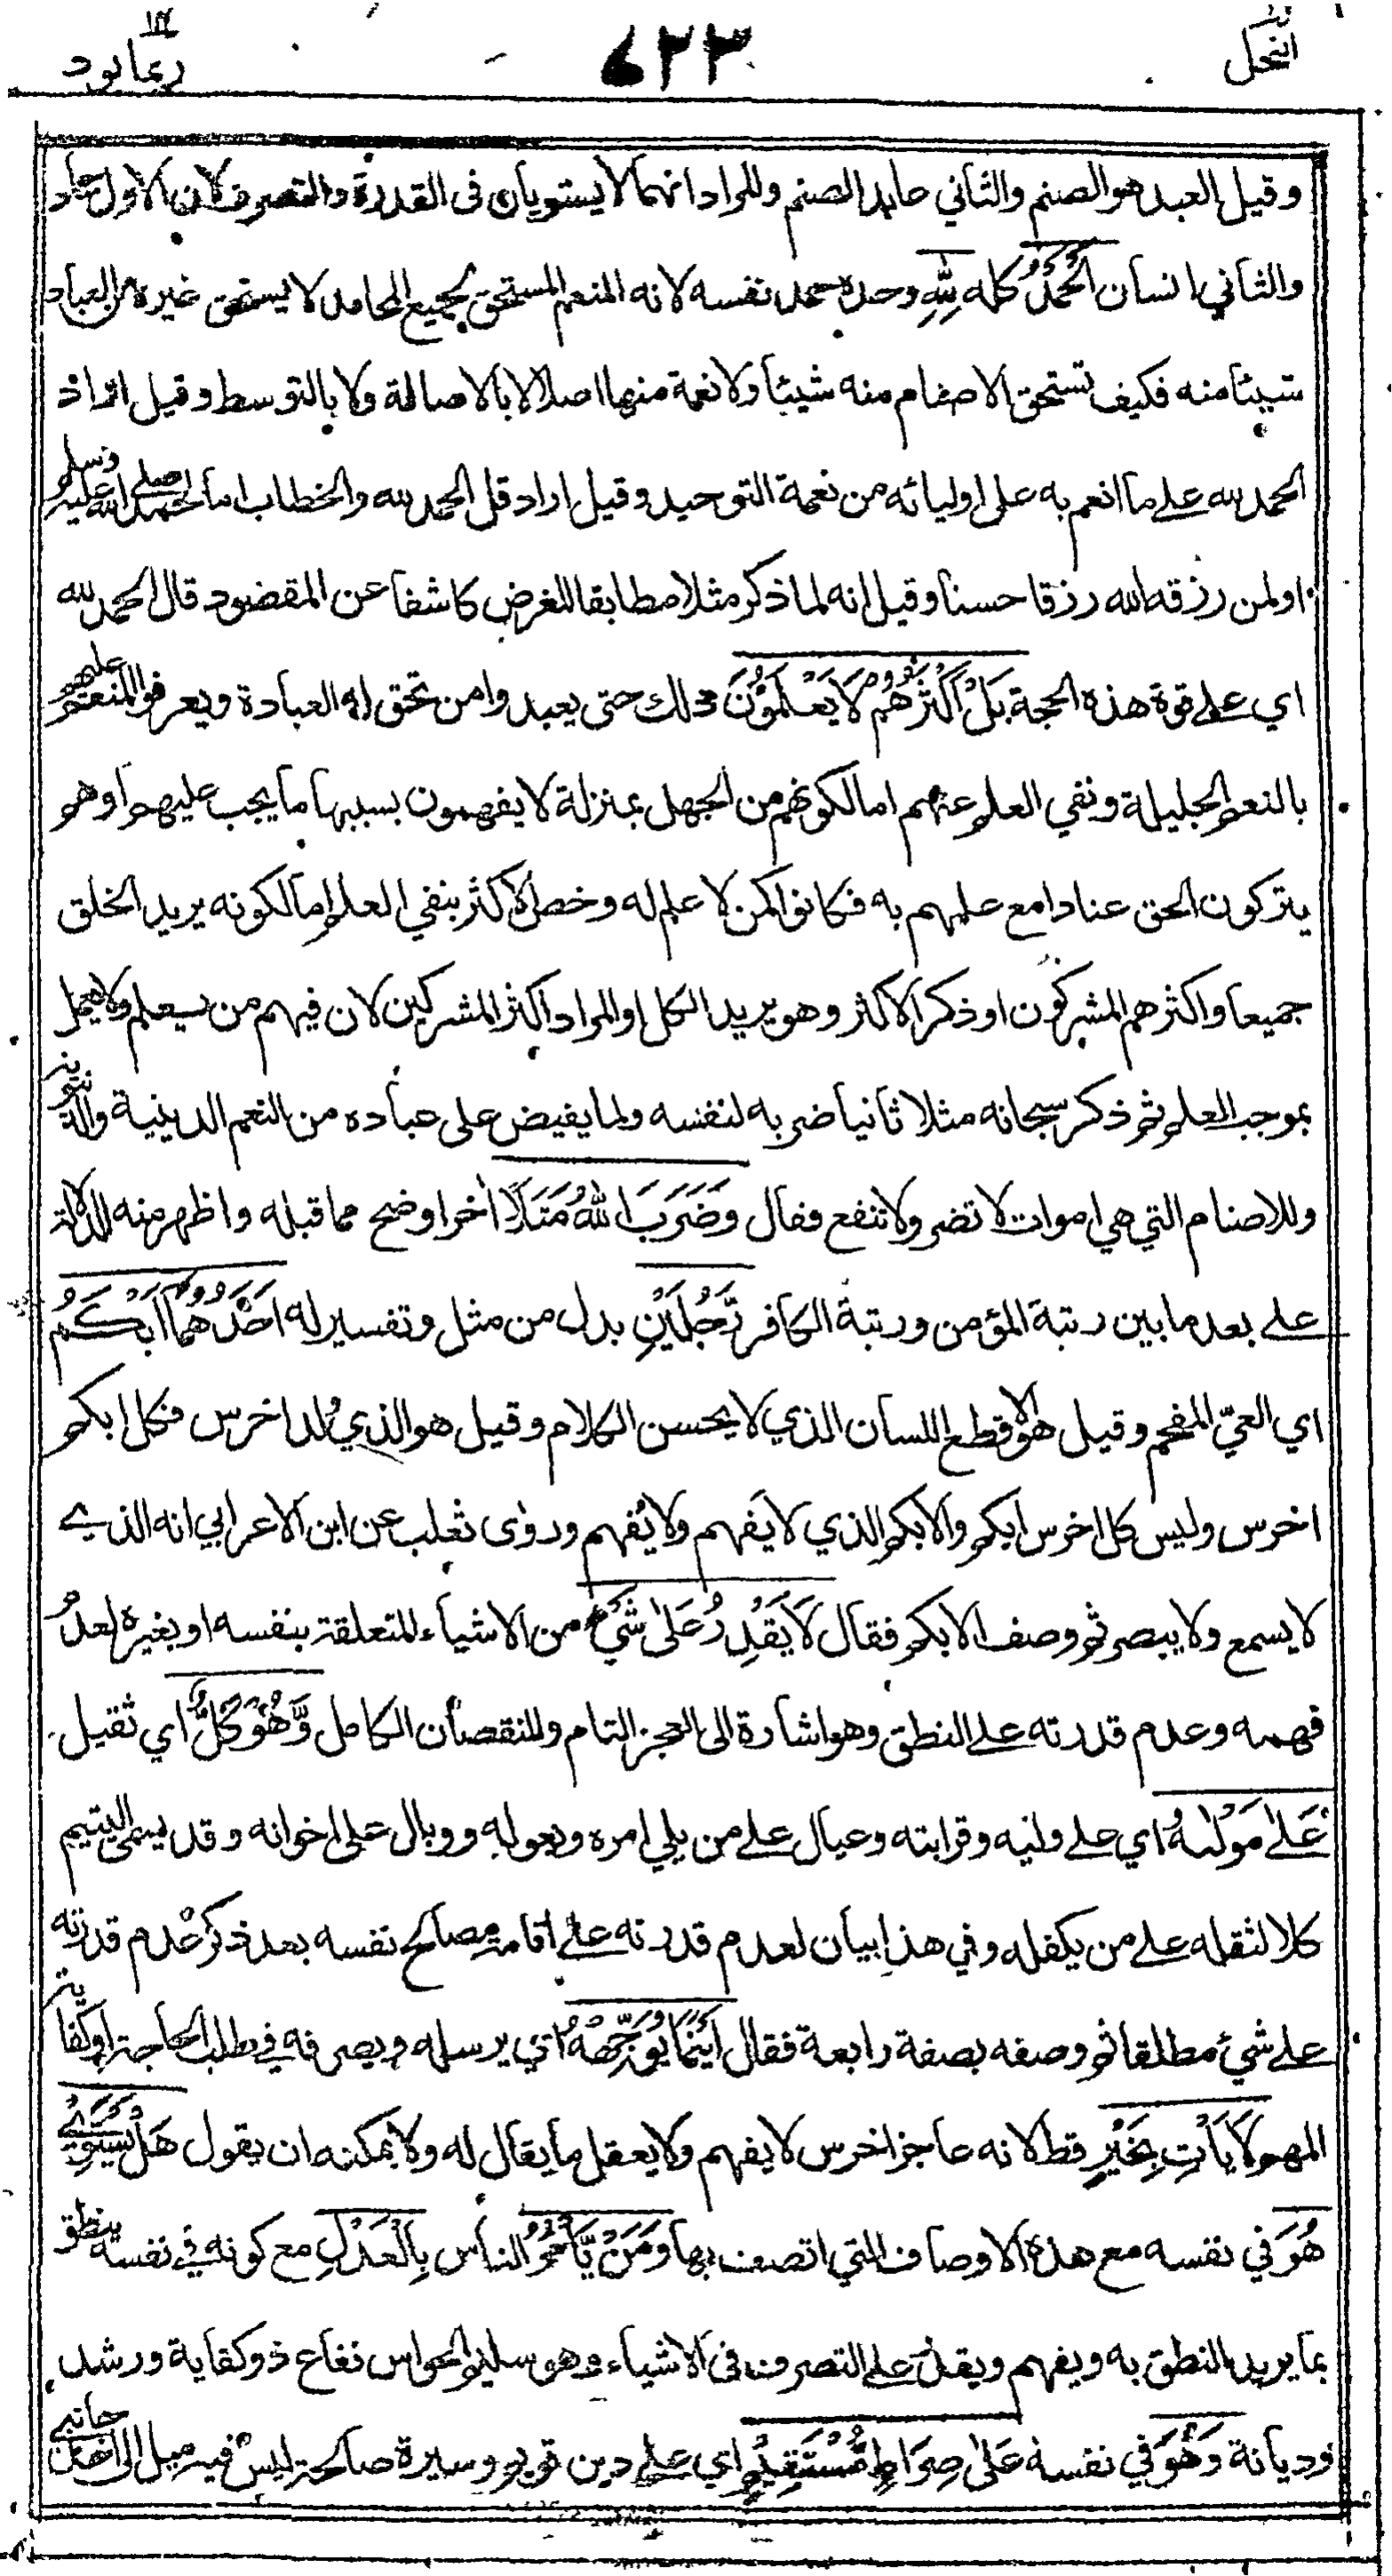 النحل
٦٢٣
ربما ١٤
وقيل العبد هو الصنم والثاني عابد الصنم والمراد انهما لا يستويان فى القدرة والتصرف لان الاول جماد
والثاني انسان اَلْحَمْدُ كله لِلّٰهِ وحده حمد نفسه لانه المنعم المستحق لجميع المحامد لا يستحق غيره من العباد
شيئا منه فكيف تستحق الاصنام منه شيئا ولا نعمة منها اصلا لا بالاصالة ولا بالتوسط وقيل اراد
الحمد لله على ما انعم به على اوليائه من نعمة التوحيد وقيل اراد قل الحمد لله والخطاب اما لمحمد صلى الله عليه وسلم
او لمن رزقه الله رزقا حسنا وقيل انه لما ذكر مثلا مطابقا للغرض كاشفا عن المقصود قال الحمد لله
اي على قوة هذه الحجة بَلْ اَكْثَرُهُمْ لَا يَعْلَمُوْنَ ذلك حتى يعبدوا من تحق له العبادة ويعرفوا المنعم عليهم
بالنعم الجليلة ونفي العلم عنهم اما لكونهم من الجهل بمنزلة لا يفهمون بسببها ما يجب عليهم او هم
يتركون الحق عنادا مع علمهم به فكانوا كمن لا علم له وخص الاكثر بنفي العلم اما لكونه يريد الخلق
جميعا واكثرهم المشركون او ذكر الاكثر وهو يريد الكل او المراد اكثر المشركين لان فيهم من يعلم ولا يعمل
بموجب العلم ثم ذكر سبحانه مثلا ثانيا ضربه لنفسه ولما يفيض على عباده من النعم الدينية والدنيوية
وللاصنام التي هي اموات لا تضر ولا تنفع فقال وَضَرَبَ اللّٰهُ مَثَلًا اخر اوضح مما قبله واظهر منه للدلالة
على بعد ما بين رتبة المؤمن ورتبة الكافر رَّجُلَيْنِ بدل من مثل وتفسير له اَحَدُهُمَا اَبْكَمُ
اي العيّ المفحم وقيل هو الاقطع اللسان الذي لا يحسن الكلام وقيل هو الذي وُلد اخرس فكل ابكم
اخرس وليس كل اخرس ابكم والابكم الذي لا يَفهم ولا يُفهم وروى ثعلب عن ابن الاعرابي انه الذي
لا يسمع ولا يبصر ثم وصف الابكم فقال لَا يَقْدِرُ عَلٰى شَيْءٍ من الاشياء المتعلقة بنفسه او بغيره لعدم
فهمه وعدم قدرته على النطق وهو اشارة الى العجز التام والنقصان الكامل وَّهُوَ كَلٌّ اي ثقيل
عَلٰى مَوْلٰىهُ اي على وليه وقرابته وعيال على من يلي امره ويعوله ووبال على اخوانه وقد يسمى اليتيم
كلا لثقله على من يكفله وفي هذا بيان لعدم قدرته على اقامة مصالح نفسه بعد ذكر عدم قدرته
على شئ مطلقا ثم وصفه بصفة رابعة فقال اَيْنَمَا يُوَجِّهْهُ اي يرسله ويصرفه في طلب الحاجة او كفاية
المهم لَا يَأْتِ بِخَيْرٍ قط لانه عاجز اخرس لا يفهم ولا يعقل ما يقال له ولا يمكنه ان يقول هَلْ يَسْتَوِيْ
هُوَ في نفسه مع هذه الاوصاف التي اتصف بها وَمَنْ يَّأْمُرُ الناس بِالْعَدْلِ مع كونه في نفسه ينطق
بما يريد النطق به ويفهم ويقدر على التصرف فى الاشياء وهو سليم الحواس نفاع ذو كفاية ورشد
وديانة وَهُوَ في نفسه عَلٰى صِرَاطٍ مُّسْتَقِيْمٍ اي على دين قويم وسيرة صالحة ليس فيه ميل الى احد جانبي